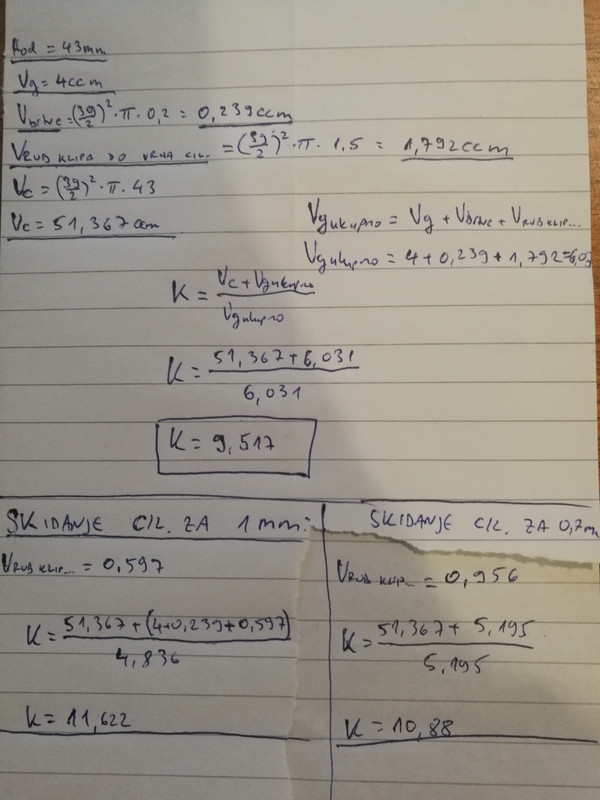 Hod = 43mm
Vg = 4ccm
Vbrtve = (39/2)² · π · 0,2 = 0,239ccm
VRUB KLIPA DO VRHA CIL. = (39/2)² · π · 1,5 = 1,792ccm
Vc = (39/2)² · π · 43
Vc = 51,367ccm
Vgukupno = Vg + Vbrtve + VRUB KLIP...
Vgukupno = 4 + 0,239 + 1,792 = 6,03
K = (Vc + Vgukupno) / Vgukupno
K = (51,367 + 6,031) / 6,031
K = 9,517
SKIDANJE CIL. ZA 1mm:
VRUB KLIP... = 0,597
K = (51,367 + (4+0,239+0,597)) / 4,836
K = 11,622
SKIDANJE CIL. ZA 0,7mm
VRUB KLIP... = 0,956
K = (51,367 + 5,195) / 5,195
K = 10,88